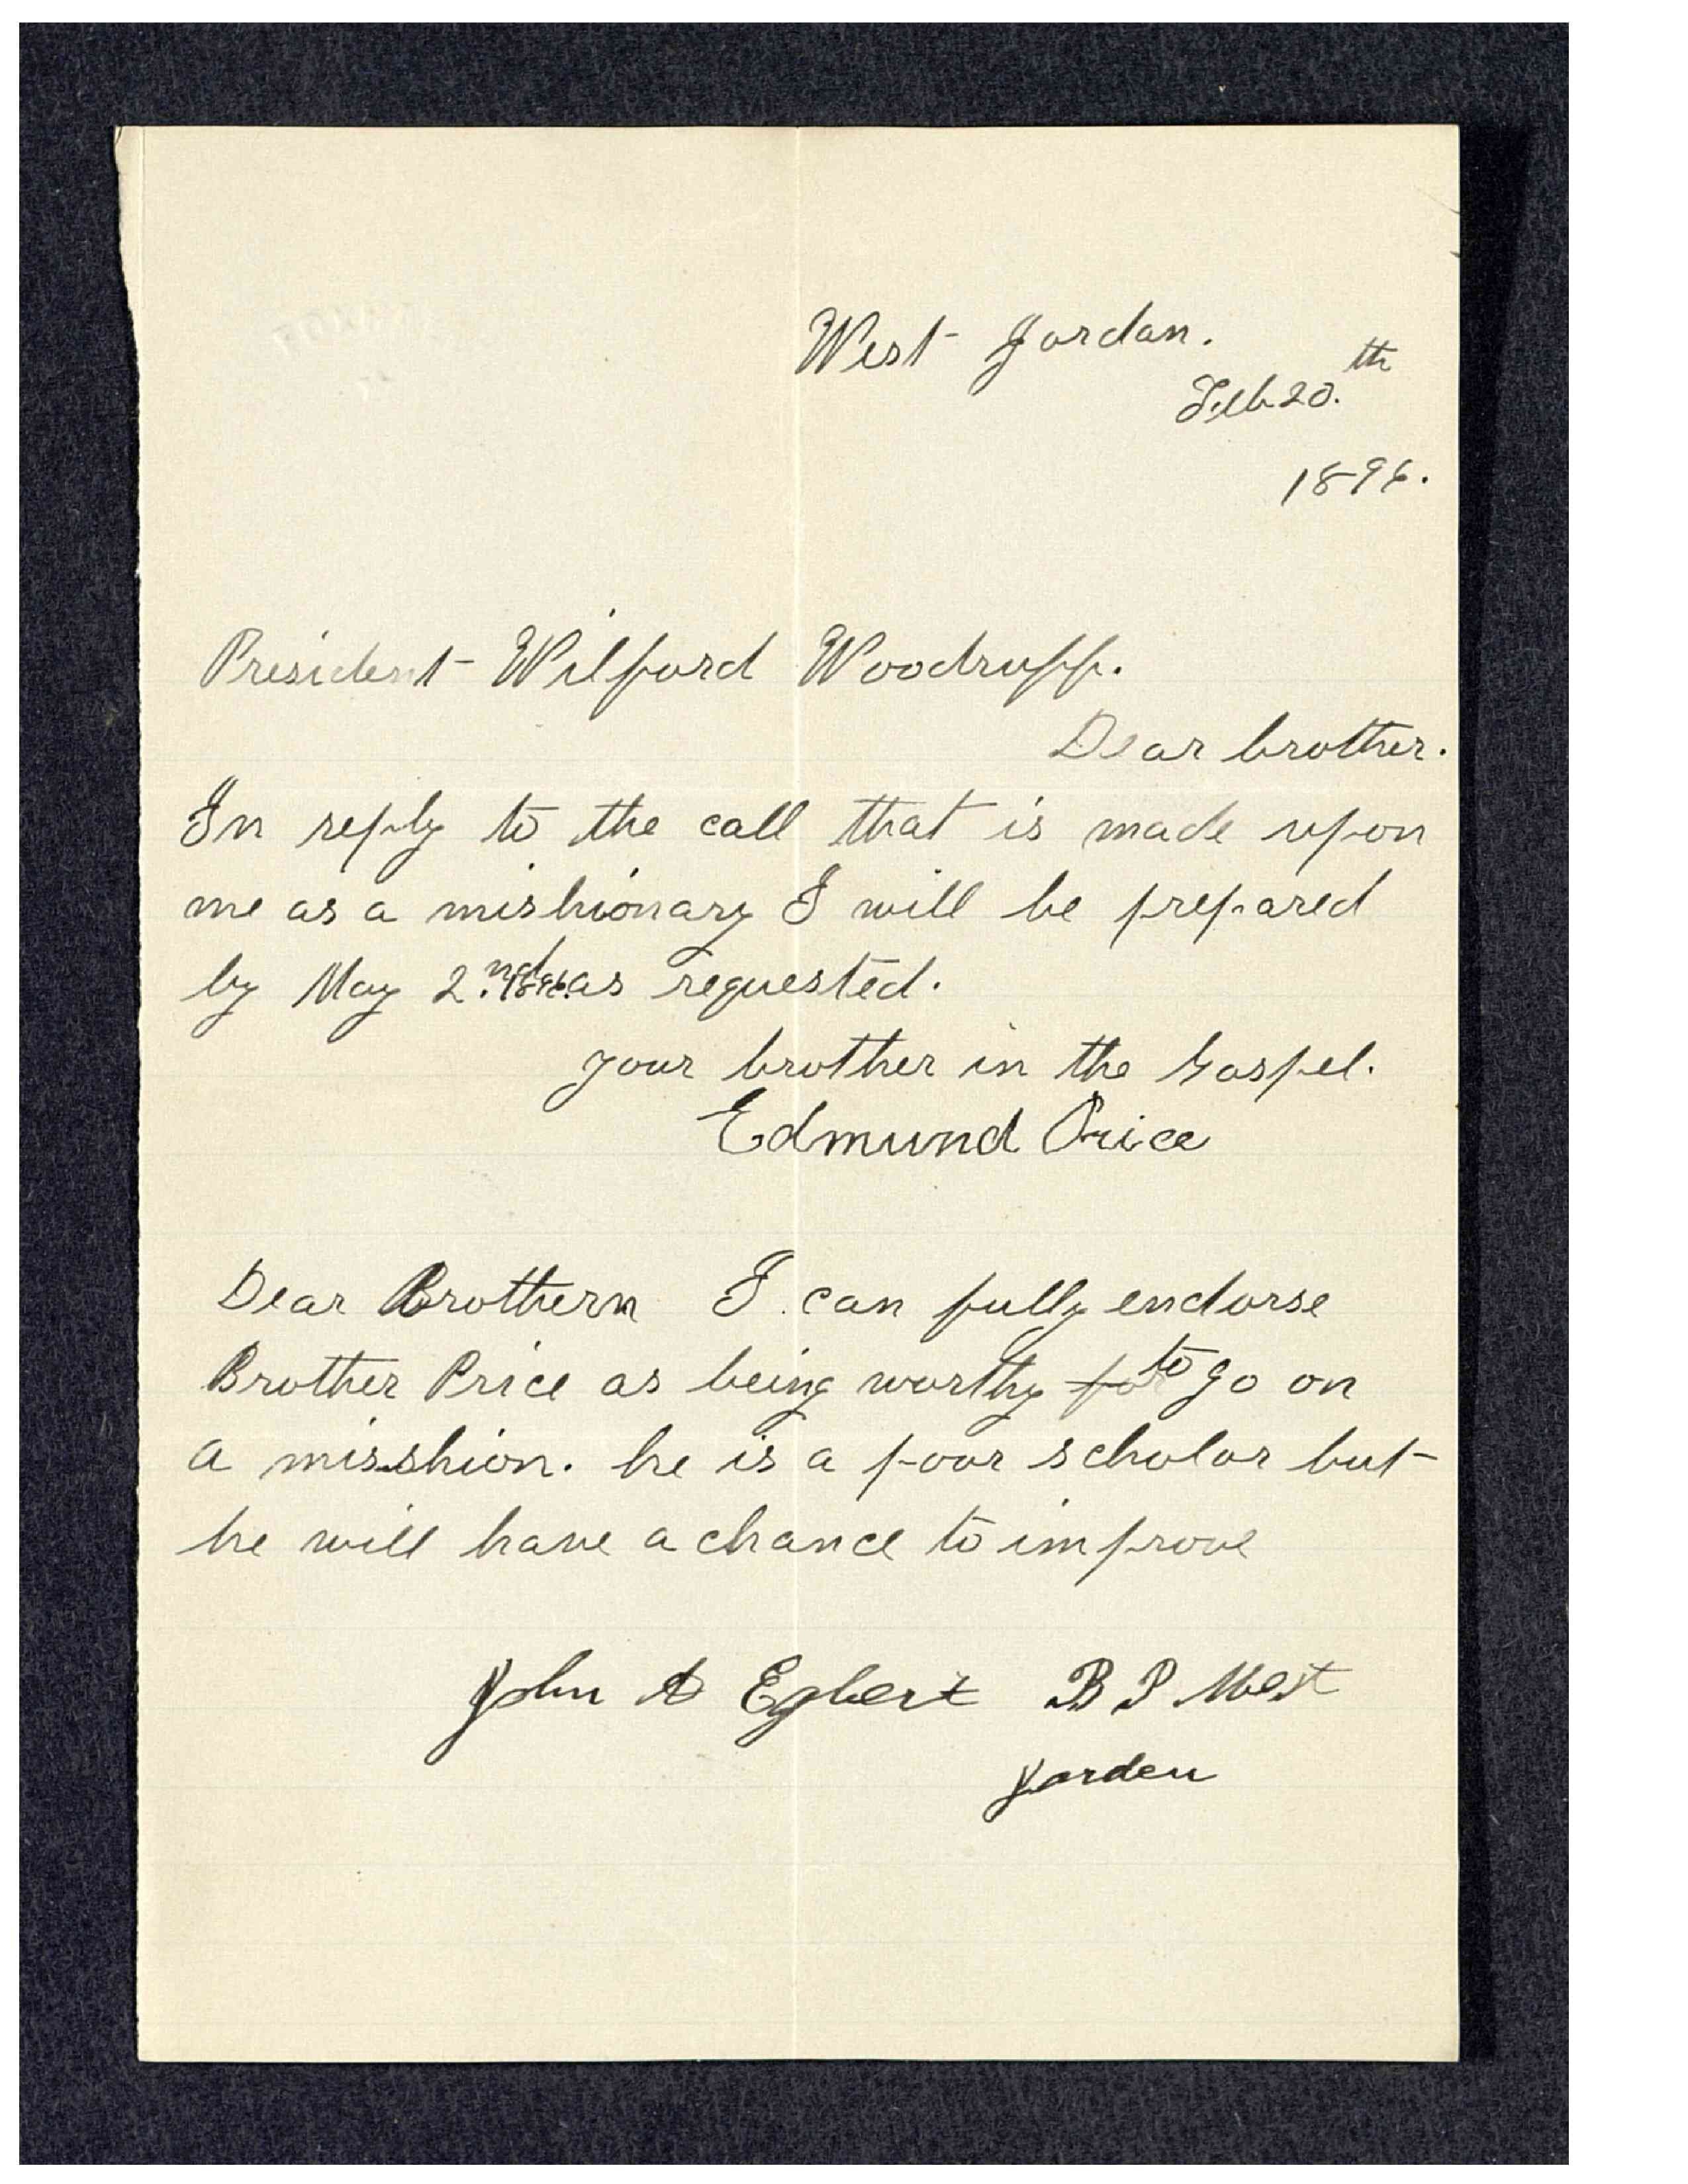 West Jordan.
Feb 20.th
1896.
President Wilford Woodruff.
Dear brother.
In reply to the call that is made upon
me as a mishionary I will be prepared
by May 2.nd 1896. as requested.
your brother in the Gospel.
Edmund Price
Dear Brothern I can fully endorse
Brother Price as being worthy for to go on
a misshion. he is a poor scholar but
he will have a chance to improve
John A Egbert B P West
Jorden